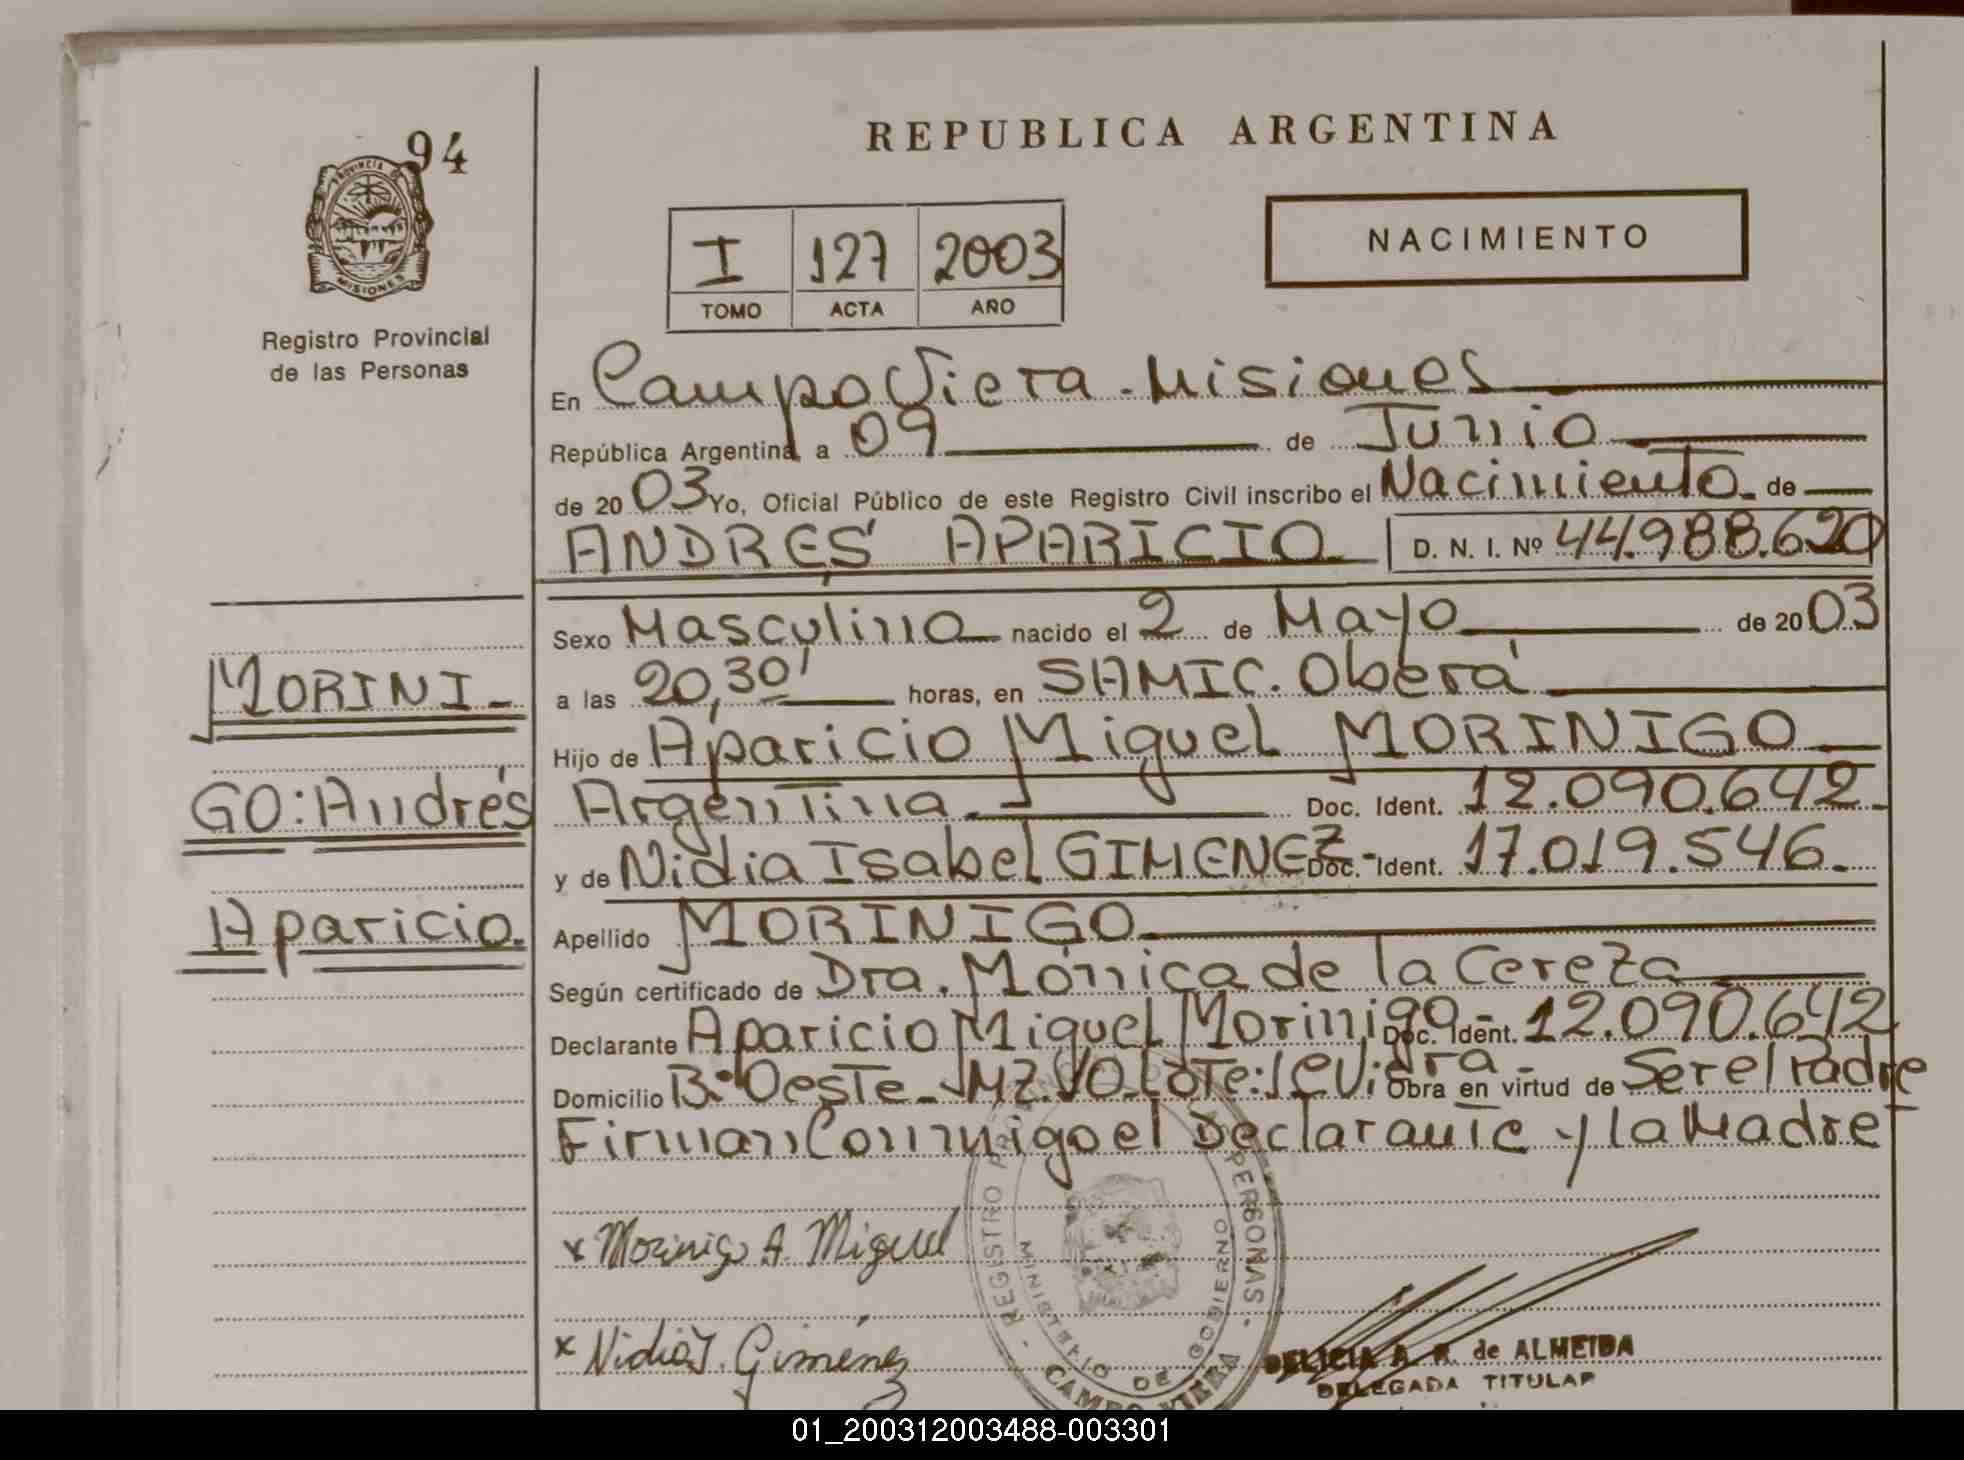 94
PROVINCIA DE
MISIONES
Registro Provincial
de las Personas
REPUBLICA ARGENTINA
I 127 2003
TOMO ACTA AÑO
NACIMIENTO
En Campo Viera - Misiones
República Argentina, a 09 de Junio
de 20 03 Yo, Oficial Público de este Registro Civil inscribo el Nacimiento de
ANDRÉS APARICIO D. N. I. Nº 44.988.620
Sexo Masculino nacido el 2 de Mayo de 20 03
a las 20,30' horas, en SAMIC. Oberá
Hijo de Aparicio Miguel MORINIGO
Argentina Doc. Ident. 12.090.642
y de Nidia Isabel GIMENEZ- Doc. Ident. 17.019.546.
Apellido MORINIGO
Según certificado de Dra. Mónica de la Cereza
Declarante Aparicio Miguel Morinigo - Doc. Ident. 12.090.642
Domicilio B° Oeste - MZ. Lote: Viera - Obra en virtud de Ser el Padre
Firman Conmigo el Declarante y la Madre
MORINI-
GO: Andrés
Aparicio.
x Morinigo A. Miguel
x Nidia I. Giménez
REGISTRO PERSONAS
MINISTERIO DE GOBIERNO
CAMPO VIERA
DELICIA A. R. de ALMEIDA
DELEGADA TITULAR
01_200312003488-003301